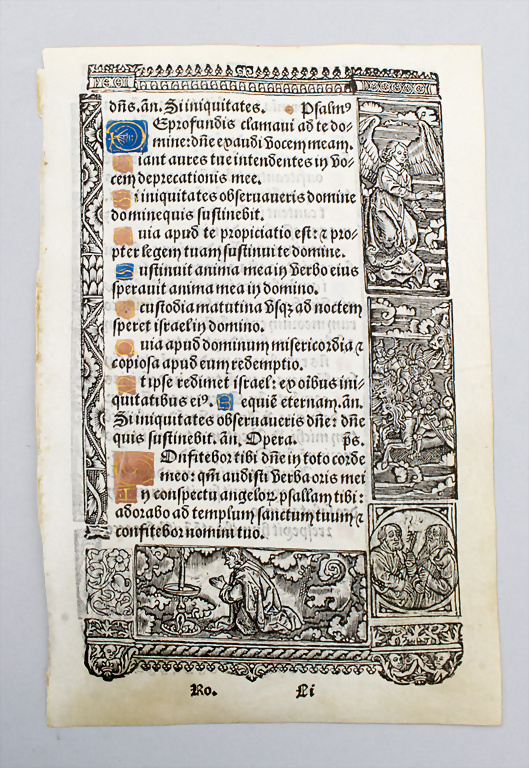 dñs. añ. Si iniquitates. Psalmꝰ
De profundis clamaui ad te do-
mine: dñe exaudi vocem meam.
Fiant aures tue intendentes in vo-
cem deprecationis mee.
Si iniquitates obseruaueris domine
domine quis sustinebit.
Quia apud te propiciatio est: ⁊ pro-
pter legem tuam sustinui te domine.
Sustinuit anima mea in verbo eius
sperauit anima mea in domino.
A custodia matutina vsqꝫ ad noctem
speret israel in domino.
Quia apud dominum misericordia ⁊
copiosa apud eum redemptio.
Et ipse redimet israel: ex oĩbus ini-
quitatibus eiꝰ. Requiẽ eternam. añ.
Si iniquitates obseruaueris dñe: dñe
quis sustinebit. añ. Opera. p̃s.
Confitebor tibi dñe in toto corde
meo: qm̃ audisti verba oris mei
In conspectu angeloꝝ psallam tibi:
adorabo ad templum sanctum tuum ⁊
confitebor nomini tuo.
Ro. Li